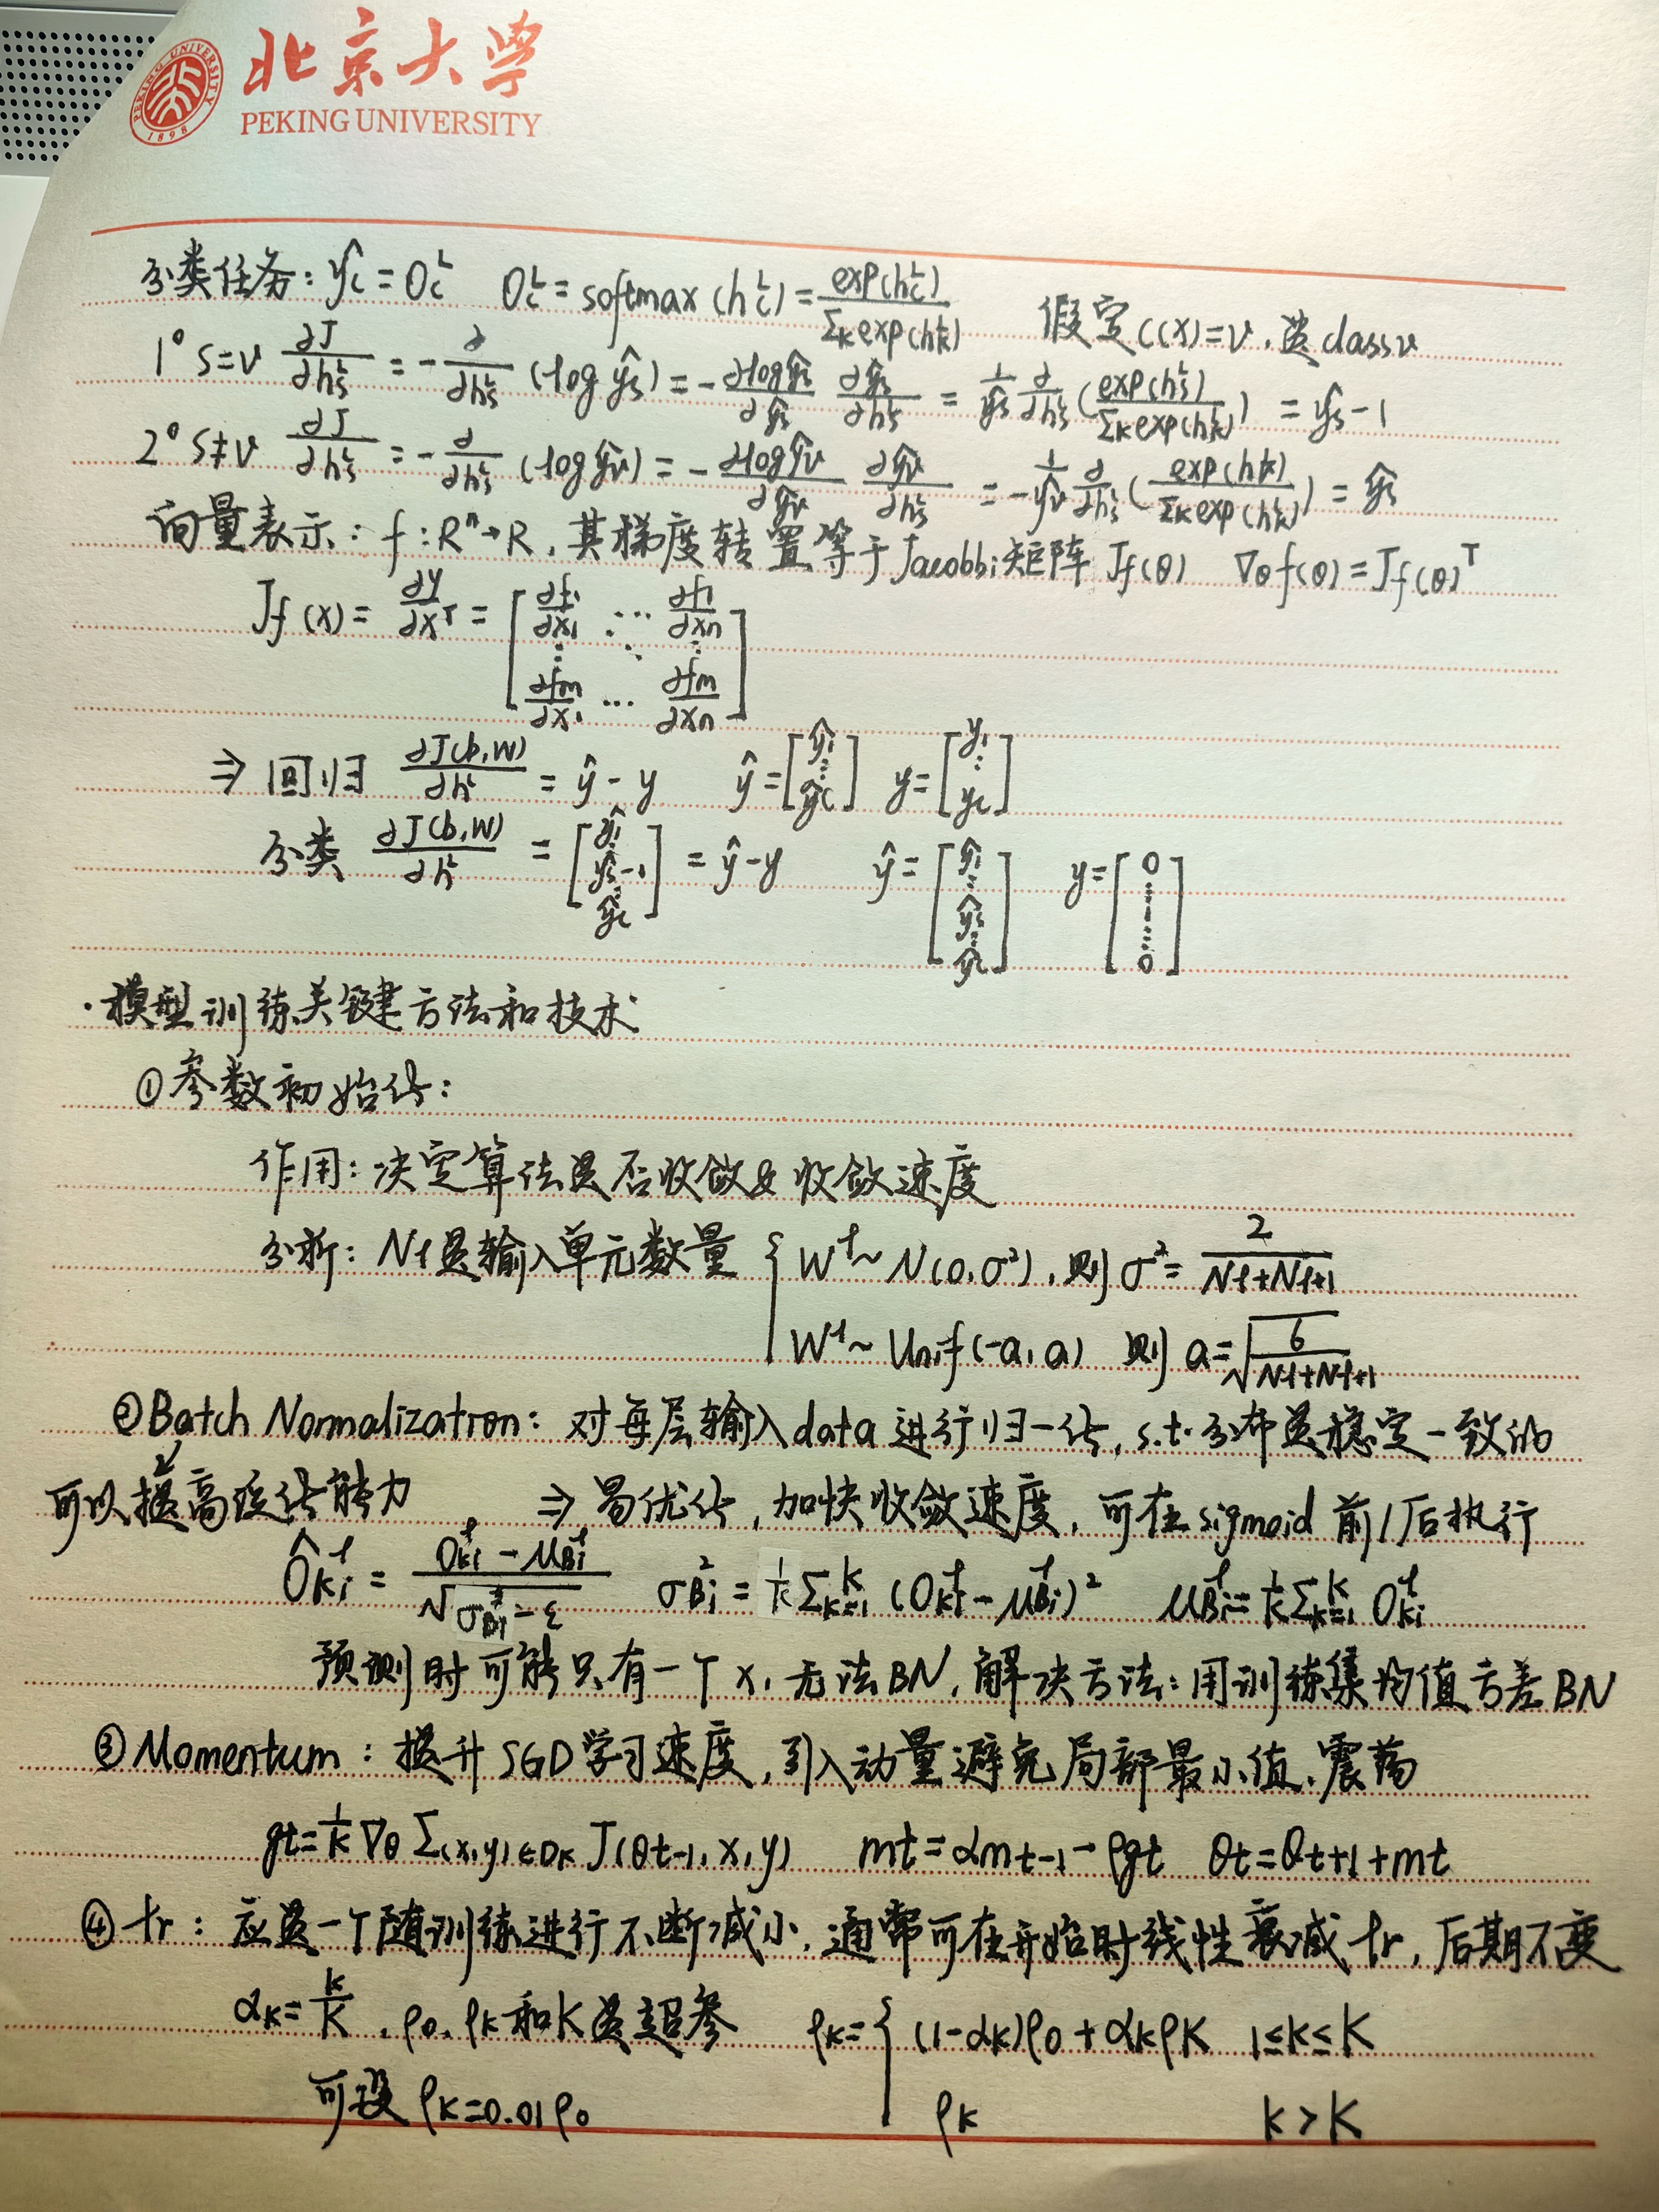 北京大学
PEKING UNIVERSITY
PEKING UNIVERSITY 1898
分类任务: ŷc = Oc^L  Oc^L = softmax(hc^L) = exp(hc^L)/Σk exp(hk^L)  假定 C(x)=v, 是 class v
1° s=v ∂J/∂hs^L = -∂/∂hs^L (log ŷs) = -∂log ŷs/∂ŷs ∂ŷs/∂hs^L = 1/ŷs ∂/∂hs^L (exp(hs^L)/Σk exp(hk^L)) = ŷs - 1
2° s≠v ∂J/∂hs^L = -∂/∂hs^L (log ŷv) = -∂log ŷv/∂ŷv ∂ŷv/∂hs^L = -1/ŷv ∂/∂hs^L (exp(hk^L)/Σk exp(hk^L)) = ŷs
向量表示: f: R^n→R, 其梯度转置等于Jacobbi矩阵 Jf(θ)  ∇θ f(θ) = Jf(θ)^T
Jf(x) = ∂y/∂x^T = [∂f1/∂x1 ... ∂f1/∂xn ⋮ ⋱ ⋮ ∂fm/∂x1 ... ∂fm/∂xn]
⇒ 回归 ∂J(b,W)/∂h^L = ŷ - y  ŷ = [ŷ1 ⋮ ŷc]  y = [y1 ⋮ yc]
分类 ∂J(b,W)/∂h^L = [ŷ1 ŷs-1 ⋮ ŷc] = ŷ - y  ŷ = [ŷ1 ⋮ ŷs ⋮ ŷc]  y = [0 ⋮ 1 ⋮ 0]
·模型训练关键方法和技术
①参数初始化:
作用: 决定算法是否收敛及收敛速度
分析: Nl是输入单元数量 { W^l ~ N(0,σ²), 则 σ² = 2/(Nl+Nl+1)
W^l ~ Unif(-a,a) 则 a=√(6/(Nl+Nl+1))
②Batch Normalization: 对每层输入data进行归一化, s.t.分布是稳定一致的
↙
可以提高泛化能力  ⇒ 易优化, 加快收敛速度, 可在sigmoid前/后执行
Ôki^l = (Oki^l - μBi^l)/√(σBi² - ε)  σBi² = 1/K Σk=1^K (Oki^l - μBi^l)²  μBi^l = 1/K Σk=1^K Oki^l
预测时可能只有一个x, 无法BN, 解决方法: 用训练集均值方差BN
③Momentum: 提升SGD学习速度, 引入动量避免局部最小值、震荡
gt = 1/K ∇θ Σ(x,y)∈DK J(θt-1, x, y)  mt = αmt-1 - ρgt  θt = θt+1 + mt
④lr: 应是一个随训练进行不断减小, 通常可在开始时线性衰减lr, 后期不变
αk = k/K, ρ0, ρK和K是超参  ρk = { (1-αk)ρ0 + αkρK  1≤k≤K
可设 ρK=0.01ρ0  ρK  k>K